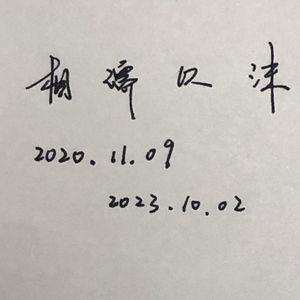 相濡以沫
2020.11.09
2023.10.02